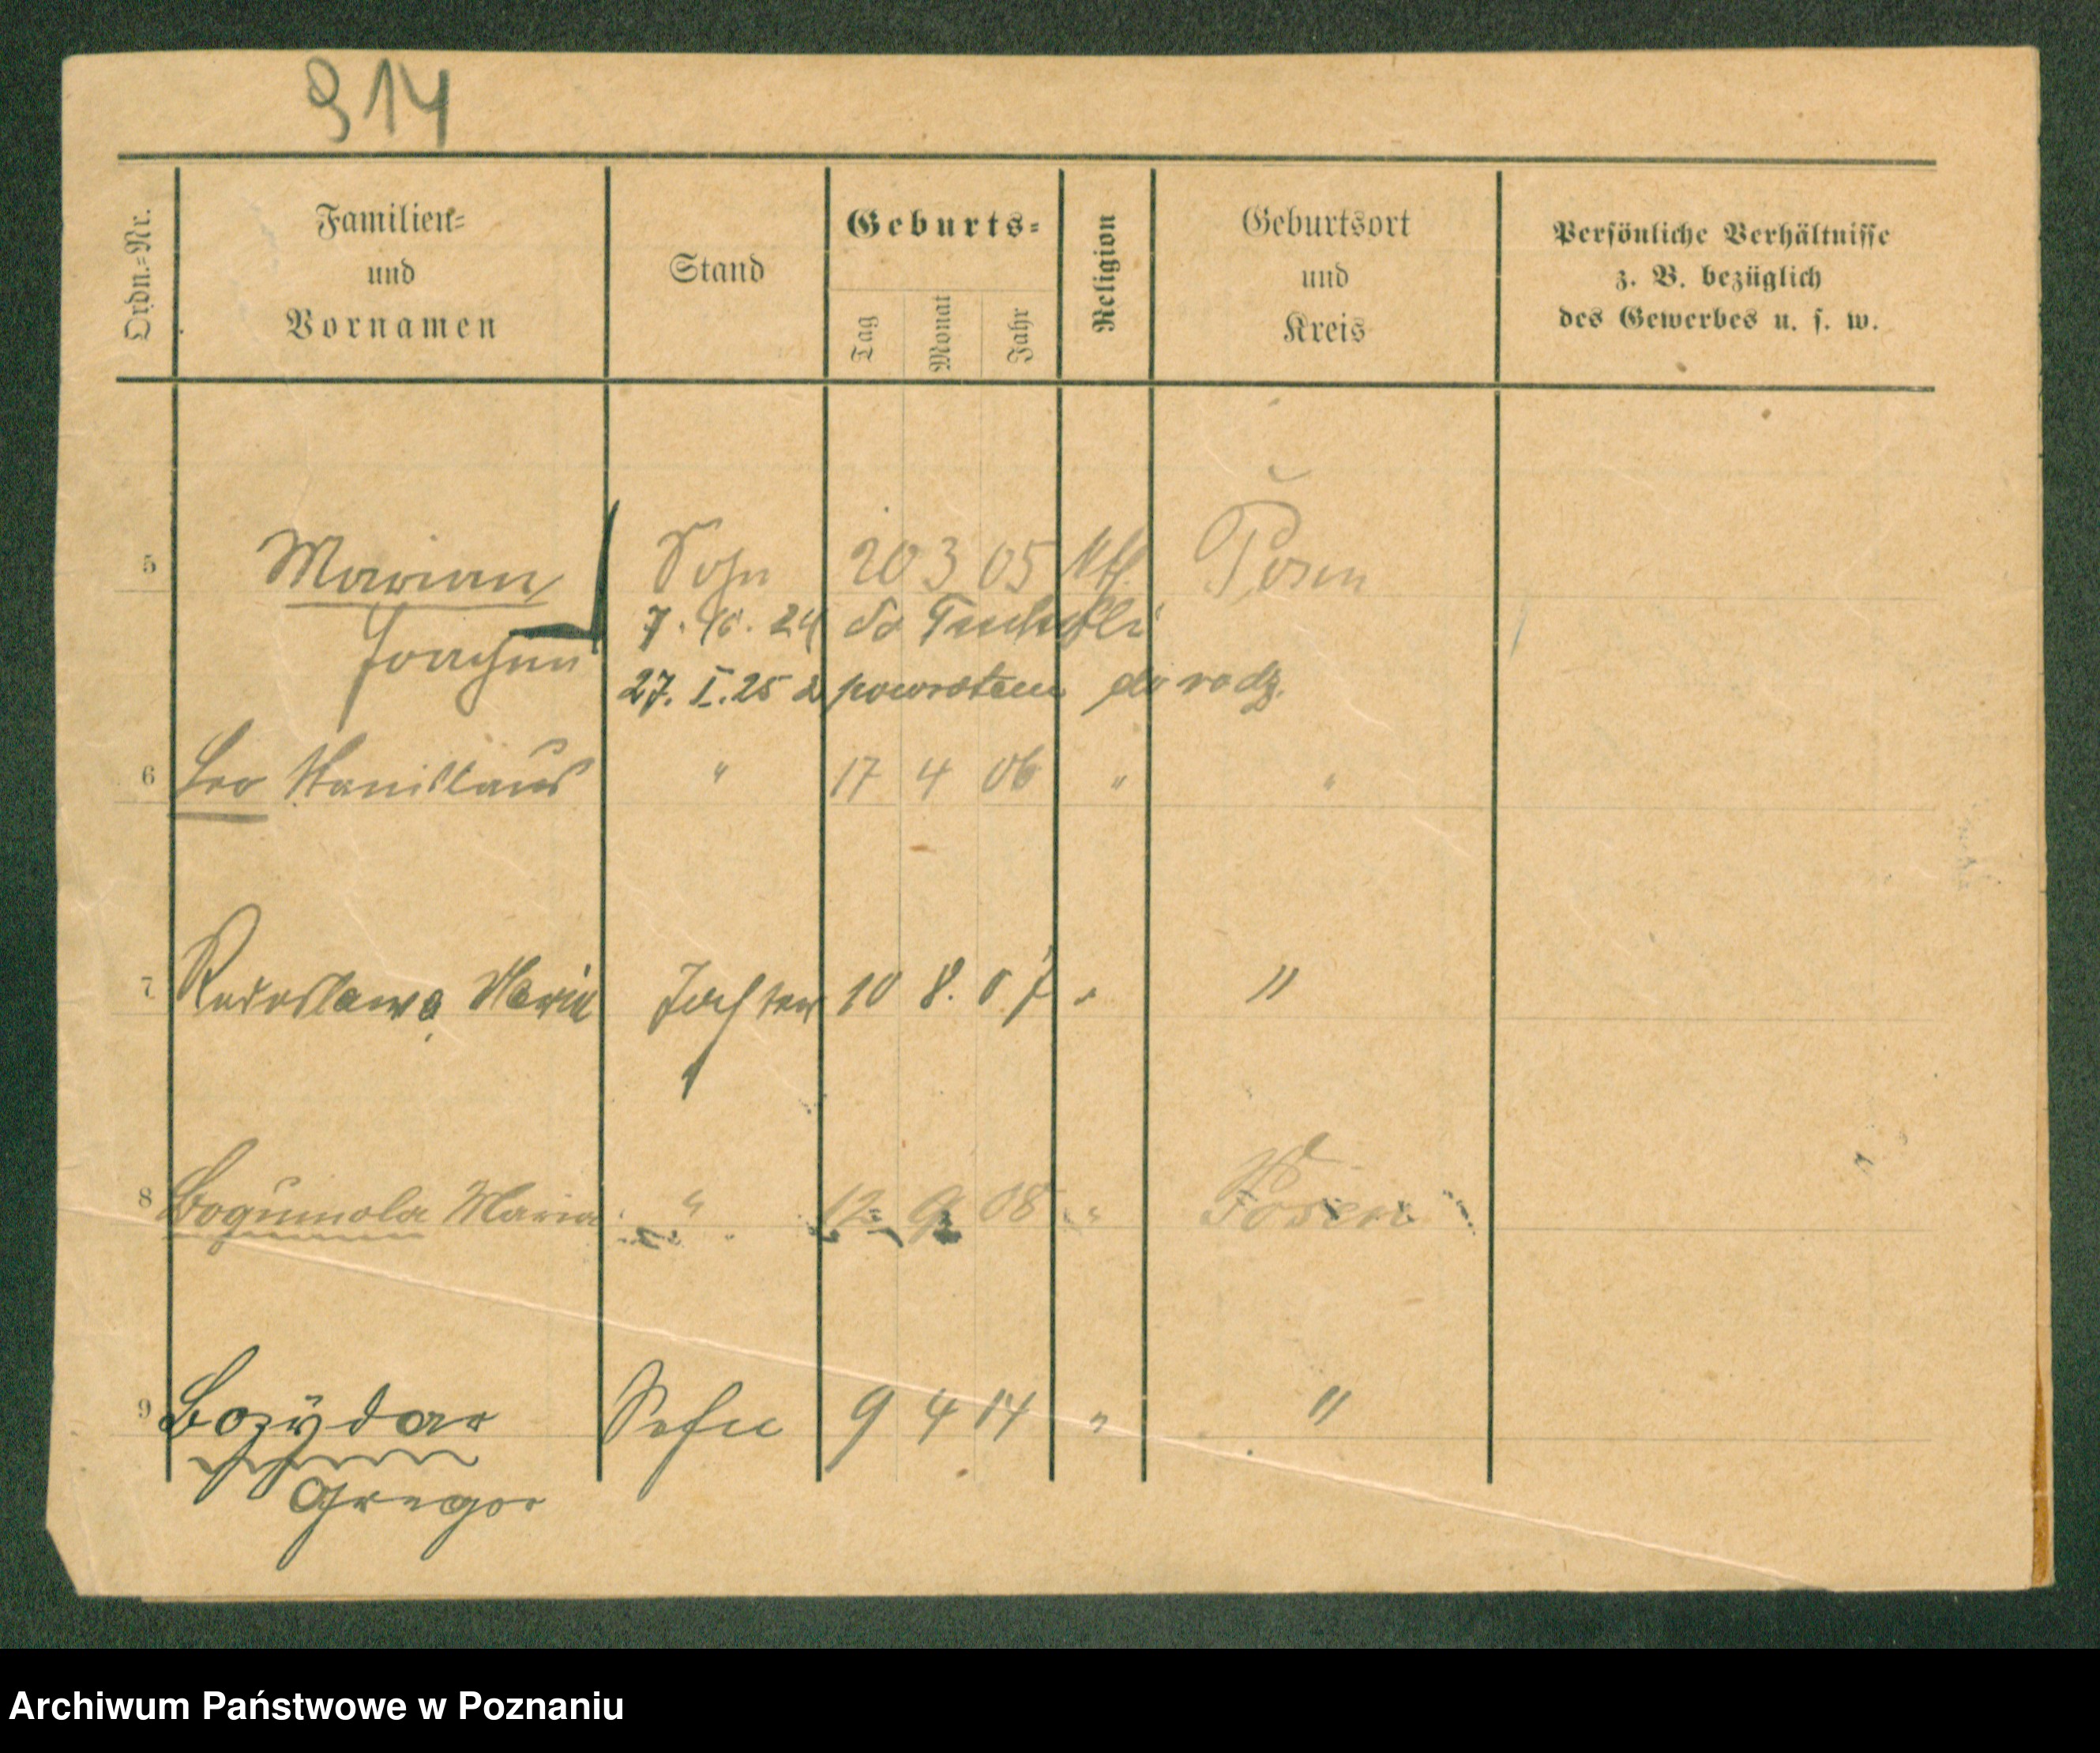 914
Ordn.=Nr.
Familien=
und
Vornamen
Stand
Geburts=
Tag
Monat
Jahr
Religion
Geburtsort
und
Kreis
Persönliche Verhältnisse
z. B. bezüglich
des Gewerbes u. s. w.
5 Marian Sohn 20 3 05 Kth. Posen
Joachim 7. 24 do
27. I. 25 z powrotem do rodz.
6 Leo Stanislaus " 17 4 06 " "
7 Radoslawa Maria Tochter 10 8. 07 " "
8 Bogumola Maria " 12 9 08 " Posen
9 Bozÿdar Sohn 9 4 14 " "
Gregor
Archiwum Państwowe w Poznaniu